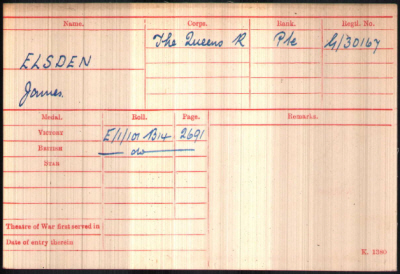 Name. Corps. Rank. Regtl. No.
ELSDEN The Queens R Pte G/30167
James.
Medal. Roll. Page. Remarks.
VICTORY E/1/101 B14 2691
BRITISH do
STAR
Theatre of War first served in
Date of entry therein
K. 1380